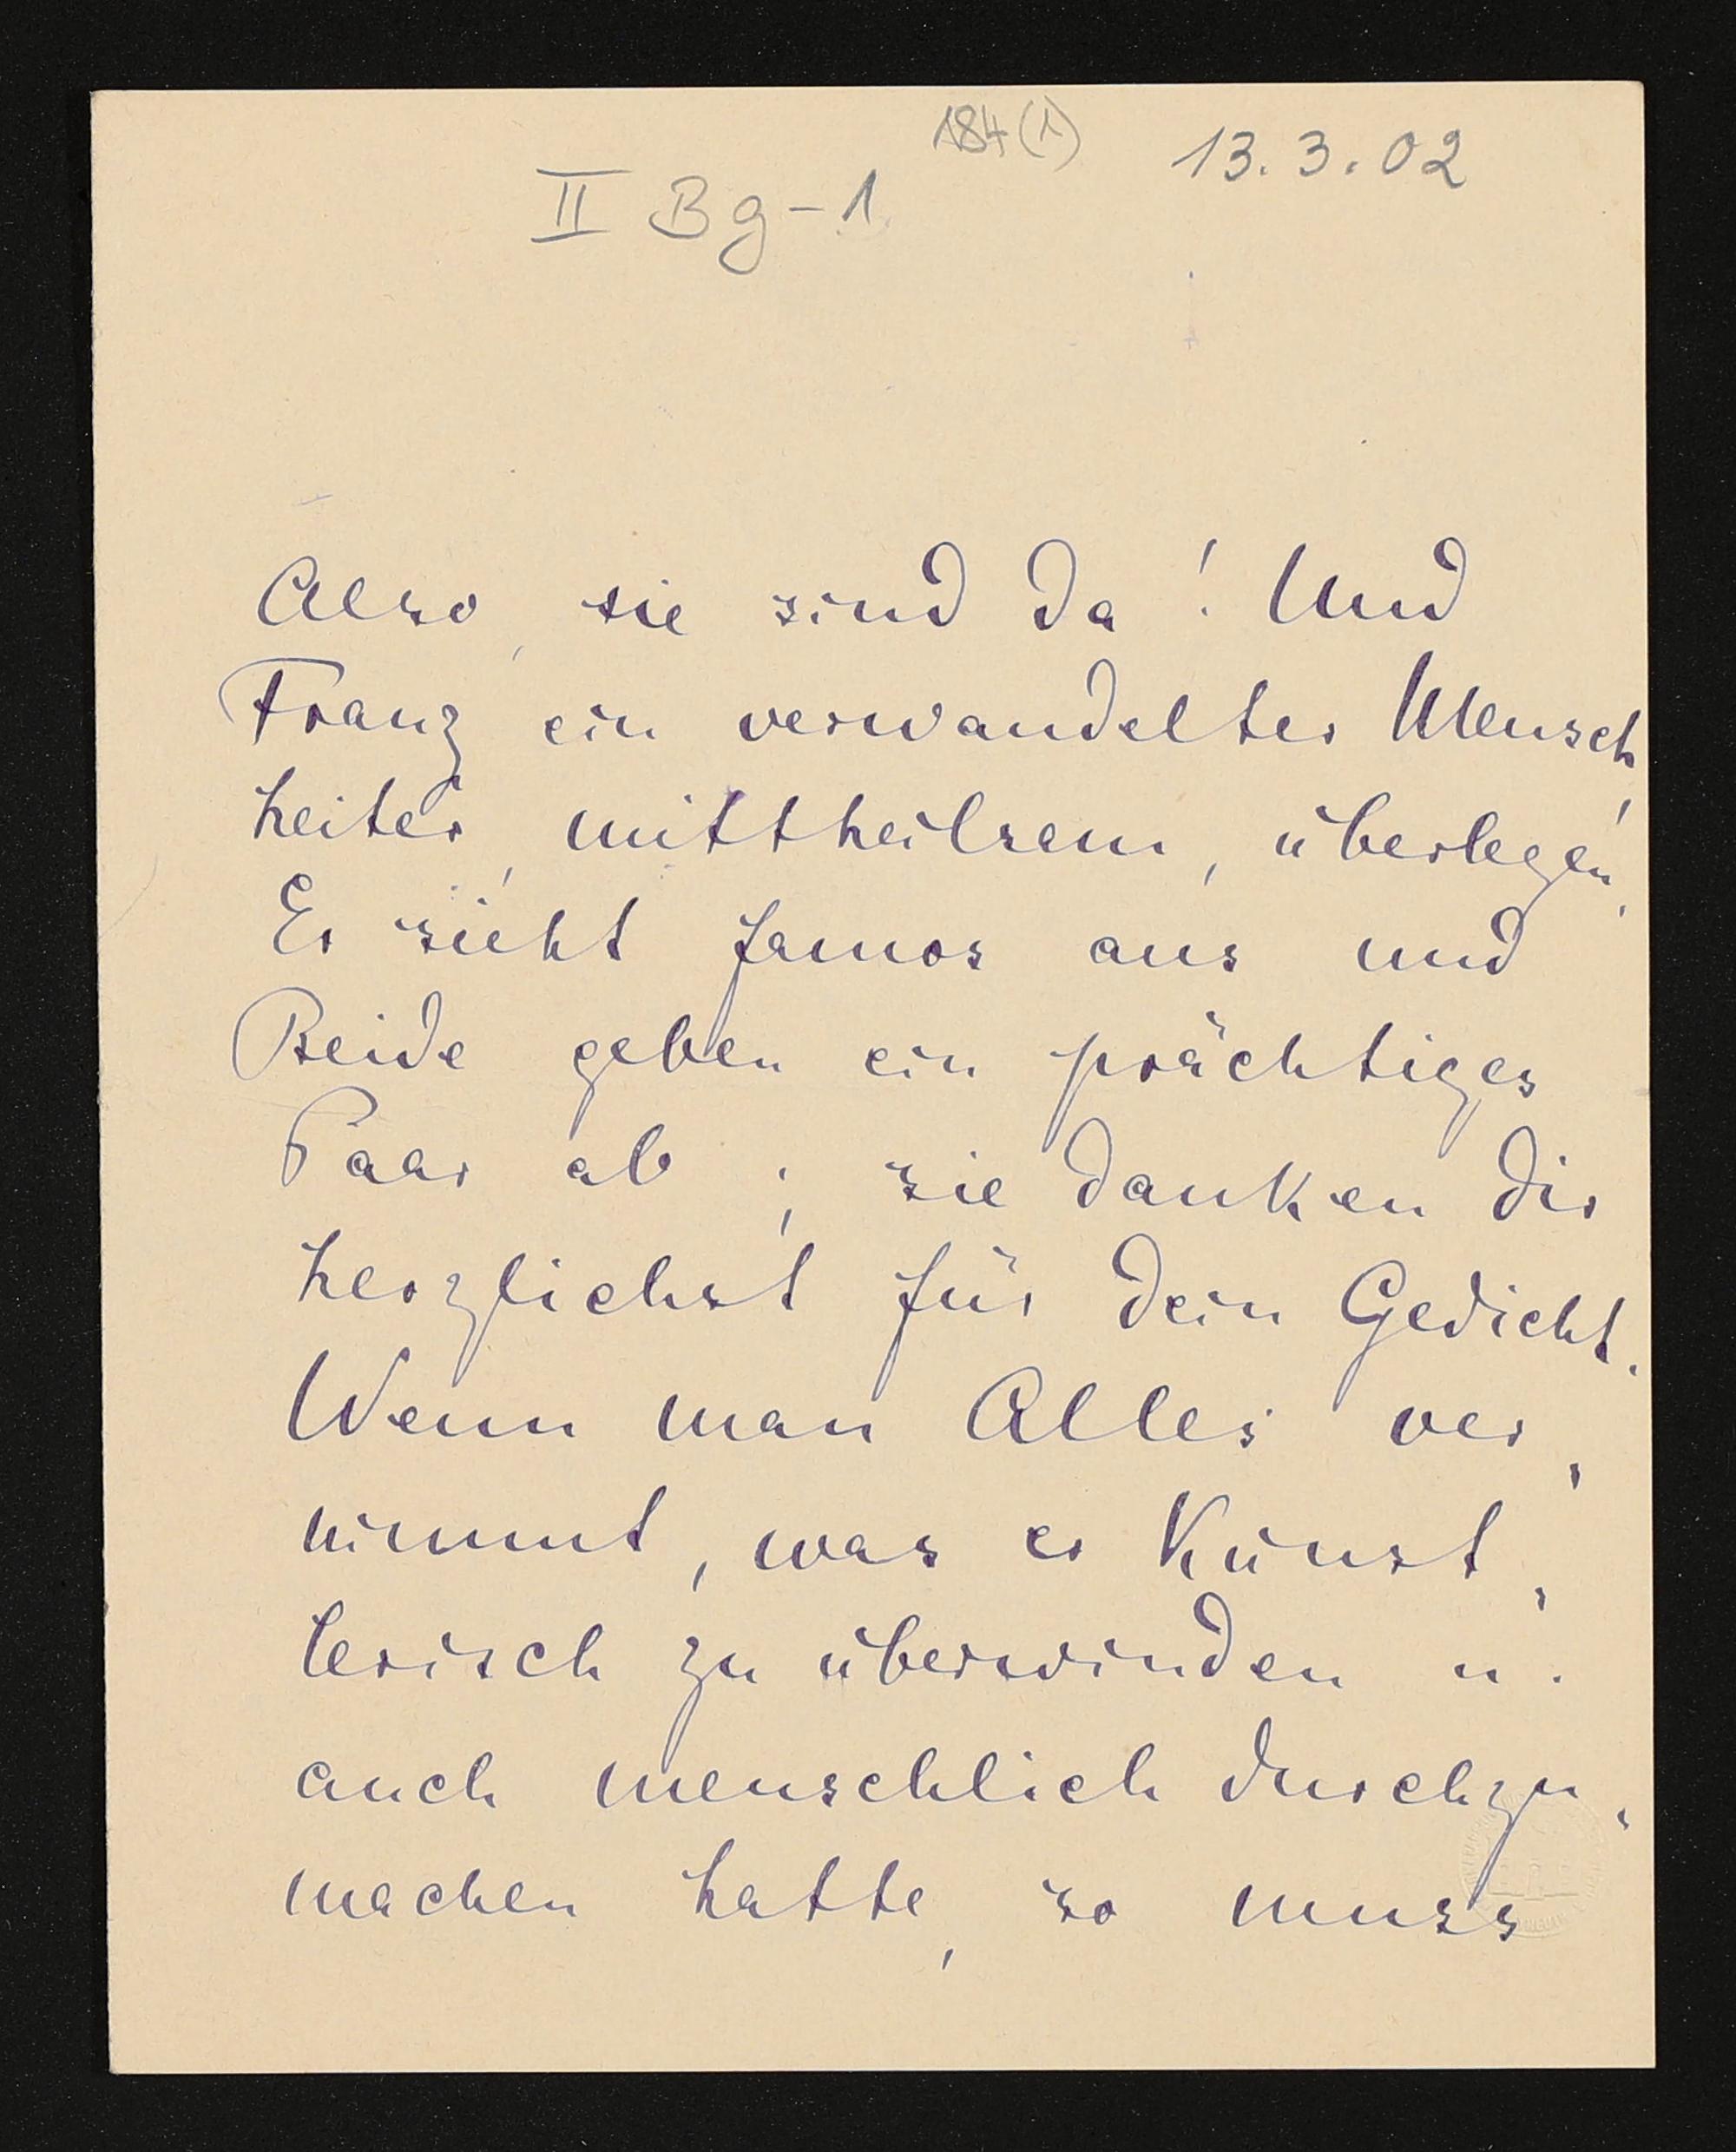 184 (1)
13. 3. 02
II Bg - 1
Also, sie sind da! Und
Franz ein verwandelter Mensch,
heiter, mittheilsam, überlegen.
Er sieht famos aus und
Beide geben ein prächtiges
Paar ab; sie danken dir
herzlichst für dein Gedicht.
Wenn man Alles ver-
nimmt, was er künst-
lerisch zu überwinden u.
auch menschlich durchzu-
machen hatte, so muss